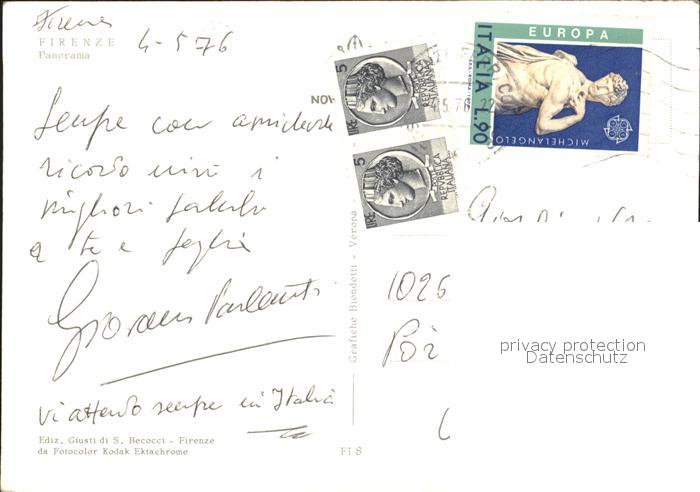 Firenze
FIRENZE
Panorama
4-5 76
Sempre con
ricordo invio i
migliori saluti
a te e famiglia
Giovanni
vi attendo sempre in Italia
Ediz. Giusti di S. Becocci - Firenze
da Fotocolor Kodak Ektachrome
FI.8
Grafiche Biondetti - Verona
NON
5
LIRE
REPVBBLICA
ITALIANA
5
LIRE
REPVBBLICA
ITALIANA
EUROPA
ITALIA L.90
MICHELANGELO
5.76
1026
privacy protection
Datenschutz